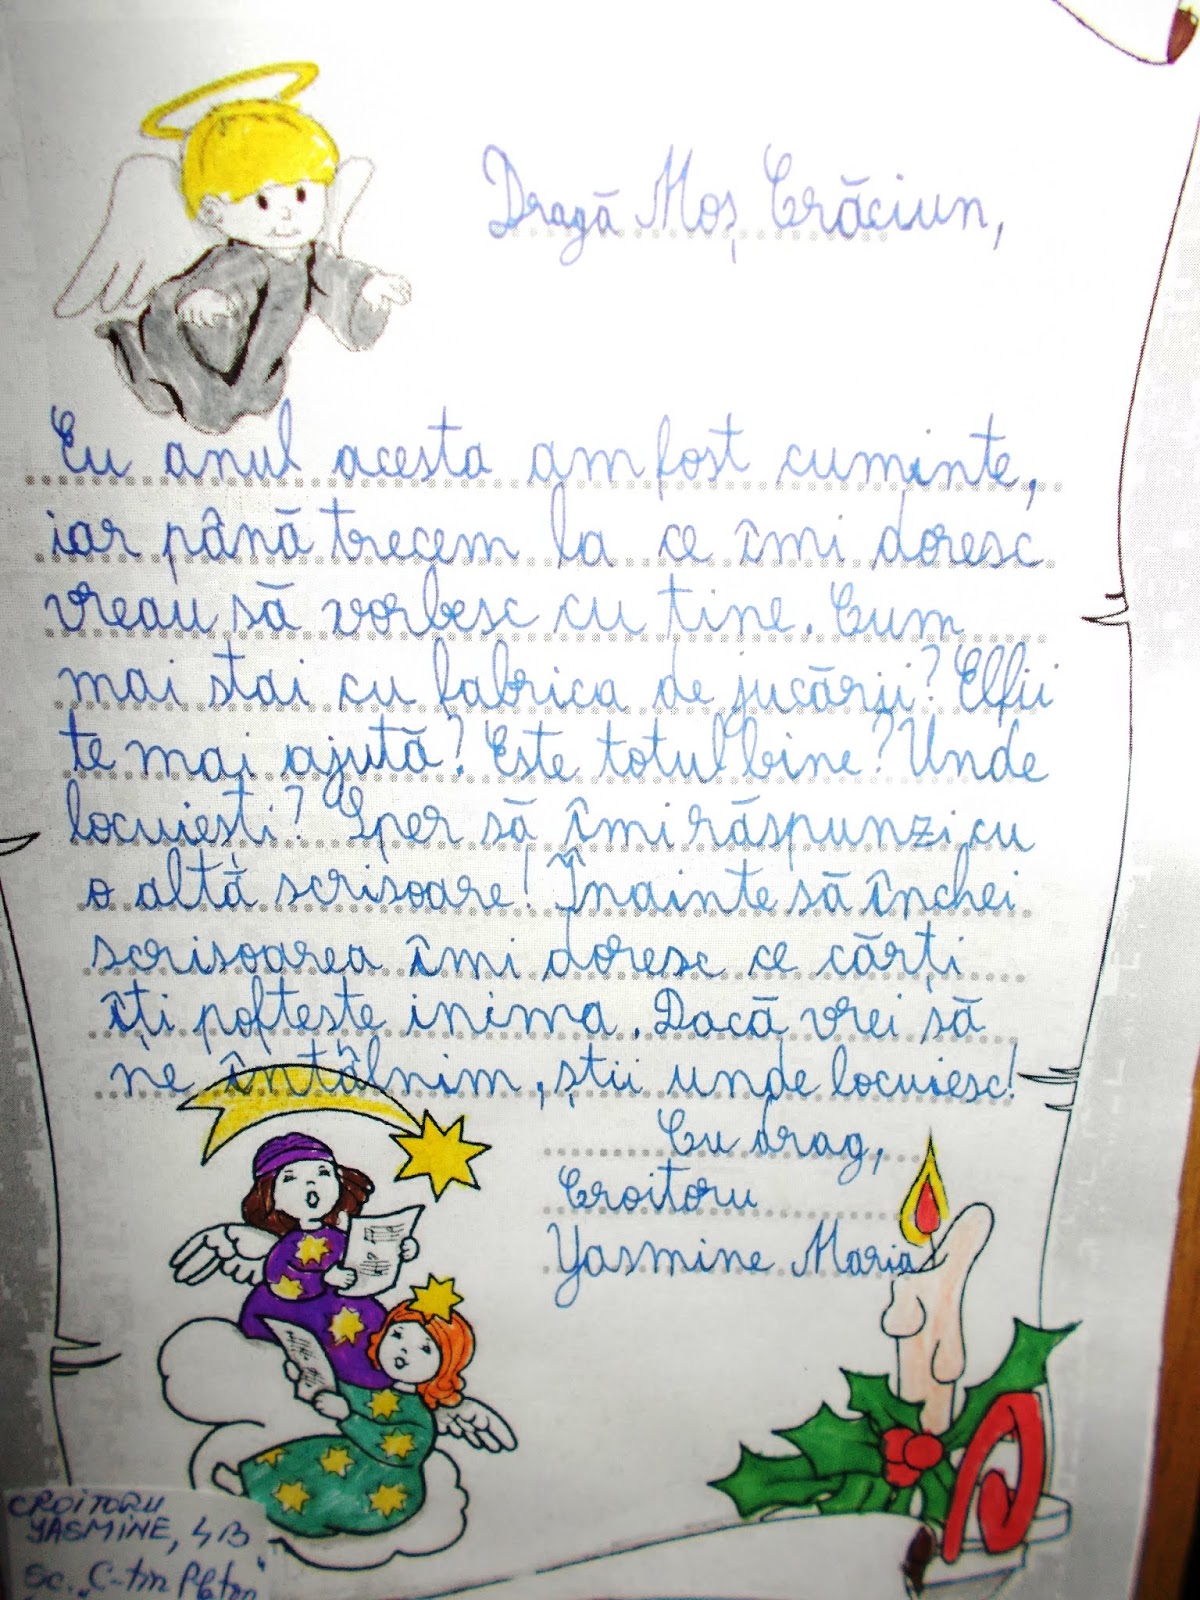 Dragă Moș Crăciun,
Eu anul acesta am fost cuminte,
iar până trecem la ce îmi doresc
vreau să vorbesc cu tine. Cum
mai stai cu fabrica de jucării? Elfii
te mai ajută? Este totul bine? Unde
locuiești? Sper să îmi răspunzi cu
o altă scrisoare! Înainte să închei
scrisoarea îmi doresc ce cărți
îți poftește inima. Dacă vrei să
ne întâlnim, știi unde locuiesc!
Cu drag,
Croitoru
Yasmine Maria
CROITORU
YASMINE, 4B
Sc. „C-tin